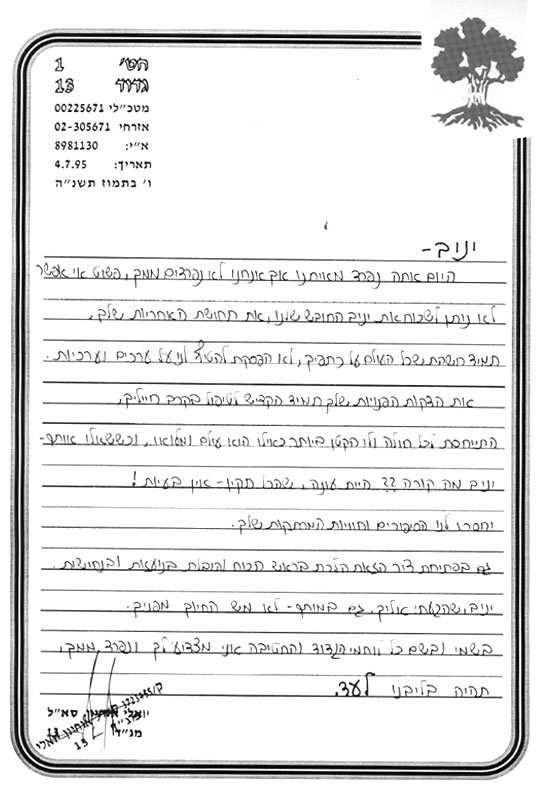 חטי' 1
גדוד 13
מטכ״לי 00225671
אזרחי 02-305671
א״י: 8981130
תאריך: 4.7.95
ו' בתמוז תשנ״ה
יניב -
היום אתה נפרד מאיתנו אך אנחנו לא נפרדים ממך, פשוט אי אפשר
לא ניתן לשכוח את יניב החובש שלנו, את תחושת האחריות שלך,
תמיד חשבת שכל העולם על כתפיך, לא הפסקת להטיף לנו על ערכים וערכיות.
את הדקות הפנויות שלך תמיד הקדשת לטיפול בקרב חייליך,
התייחסת לכל חולה ולו הקטן ביותר כאילו הוא עולם ומלואו, וכששאלו אותך-
יניב מה קורה ?? היית עונה, שהכל תקין - אין בעיות!
יחסרו לנו הסיפורים וחוויות המרתקות שלך.
גם בפתיחת ציר הזאת הלכת בראש הכוח והובלת בנועזות ובנחישות.
יניב, שהגעתי אליך, גם במותך - לא מש החיוך מפניך.
בשמי ובשם כל לוחמי הגדוד והחטיבה אני מצדיע לך ונפרד ממך,
תהיה בליבנו לעד.
סא״ל
מג״ד 13